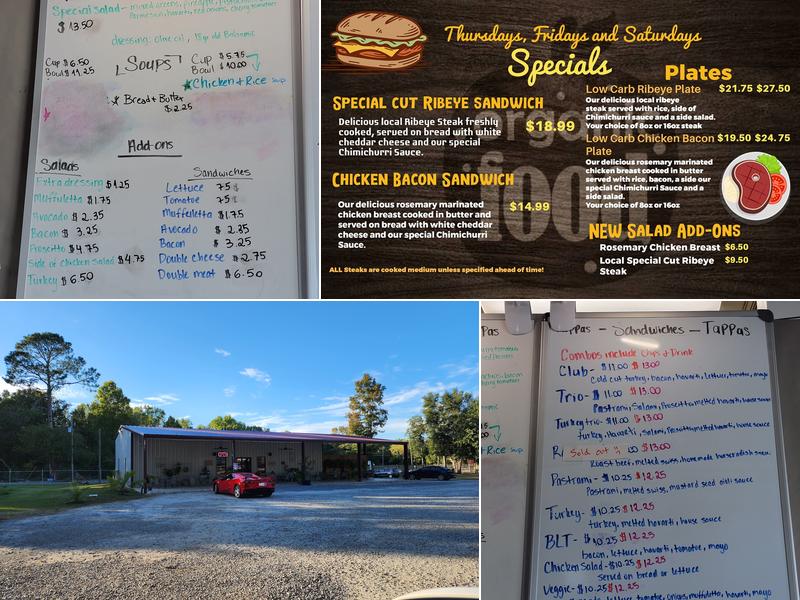 Special salad - mixed greens, pineapple,
Parmesan, havarti, red onions, cherry tomatoes
$13.50
dressing: olive oil, 18yr old Balsamic
Soups
Cup $6.50
Bowl $11.25
Cup $5.75
Bowl $10.00
Chicken & Rice Soup
Bread & Butter
$2.25
Add-ons
Salads
Extra dressing $1.25
Muffuletta $1.75
Avocado $2.35
Bacon $3.25
Prosetto $4.75
Side of chicken salad $4.75
Turkey $6.50
Sandwiches
Lettuce 75¢
Tomatoe 75¢
Muffuletta $1.75
Avocado $2.35
Bacon $3.25
Double cheese $2.75
Double meat $6.50
Thursdays, Fridays and Saturdays
Specials
Special Cut Ribeye Sandwich
Delicious local Ribeye Steak freshly
cooked, served on bread with white
cheddar cheese and our special
Chimichurri Sauce.
$18.99
Chicken Bacon Sandwich
Our delicious rosemary marinated
chicken breast cooked in butter and
served on bread with white cheddar
cheese and our special Chimichurri
Sauce.
$14.99
ALL Steaks are cooked medium unless specified ahead of time!
Plates
Low Carb Ribeye Plate $21.75 $27.50
Our delicious local ribeye
steak served with rice, side of
Chimichurri sauce and a side salad.
Your choice of 8oz or 16oz steak
Low Carb Chicken Bacon $19.50 $24.75
Plate
Our delicious rosemary marinated
chicken breast cooked in butter
served with rice, bacon, a side our
special Chimichurri Sauce, and a side
salad.
Your choice of 8oz or 16oz
New Salad Add-ons
Rosemary Chicken Breast $6.50
Local Special Cut Ribeye $9.50
Steak
OPEN
Tappas - Sandwiches - Tappas
Combos include Chips & Drink
Club - $11.00 $13.00
Cold cut turkey, bacon, havarti, lettuce, tomatoe, mayo
Trio - $11.00 $13.00
Pastrami, Salami, Prosetto, melted havarti, house sauce
Turkey trio - $11.00 $13.00
turkey, Havarti, salami, Prosetto, melted havarti, house sauce
Sold out
$13.00
Roast beef, melted swiss, homemade horseradish sauce
Pastrami - $10.25 $12.25
Pastrami, melted swiss, mustard seed aioli sauce
Turkey - $10.25 $12.25
turkey, melted havarti, house sauce
BLT - $10.25 $12.25
bacon, lettuce, havarti, tomatoe, mayo
Chicken Salad - $10.25 $12.25
served on bread or lettuce
Veggie - $10.25 $12.25